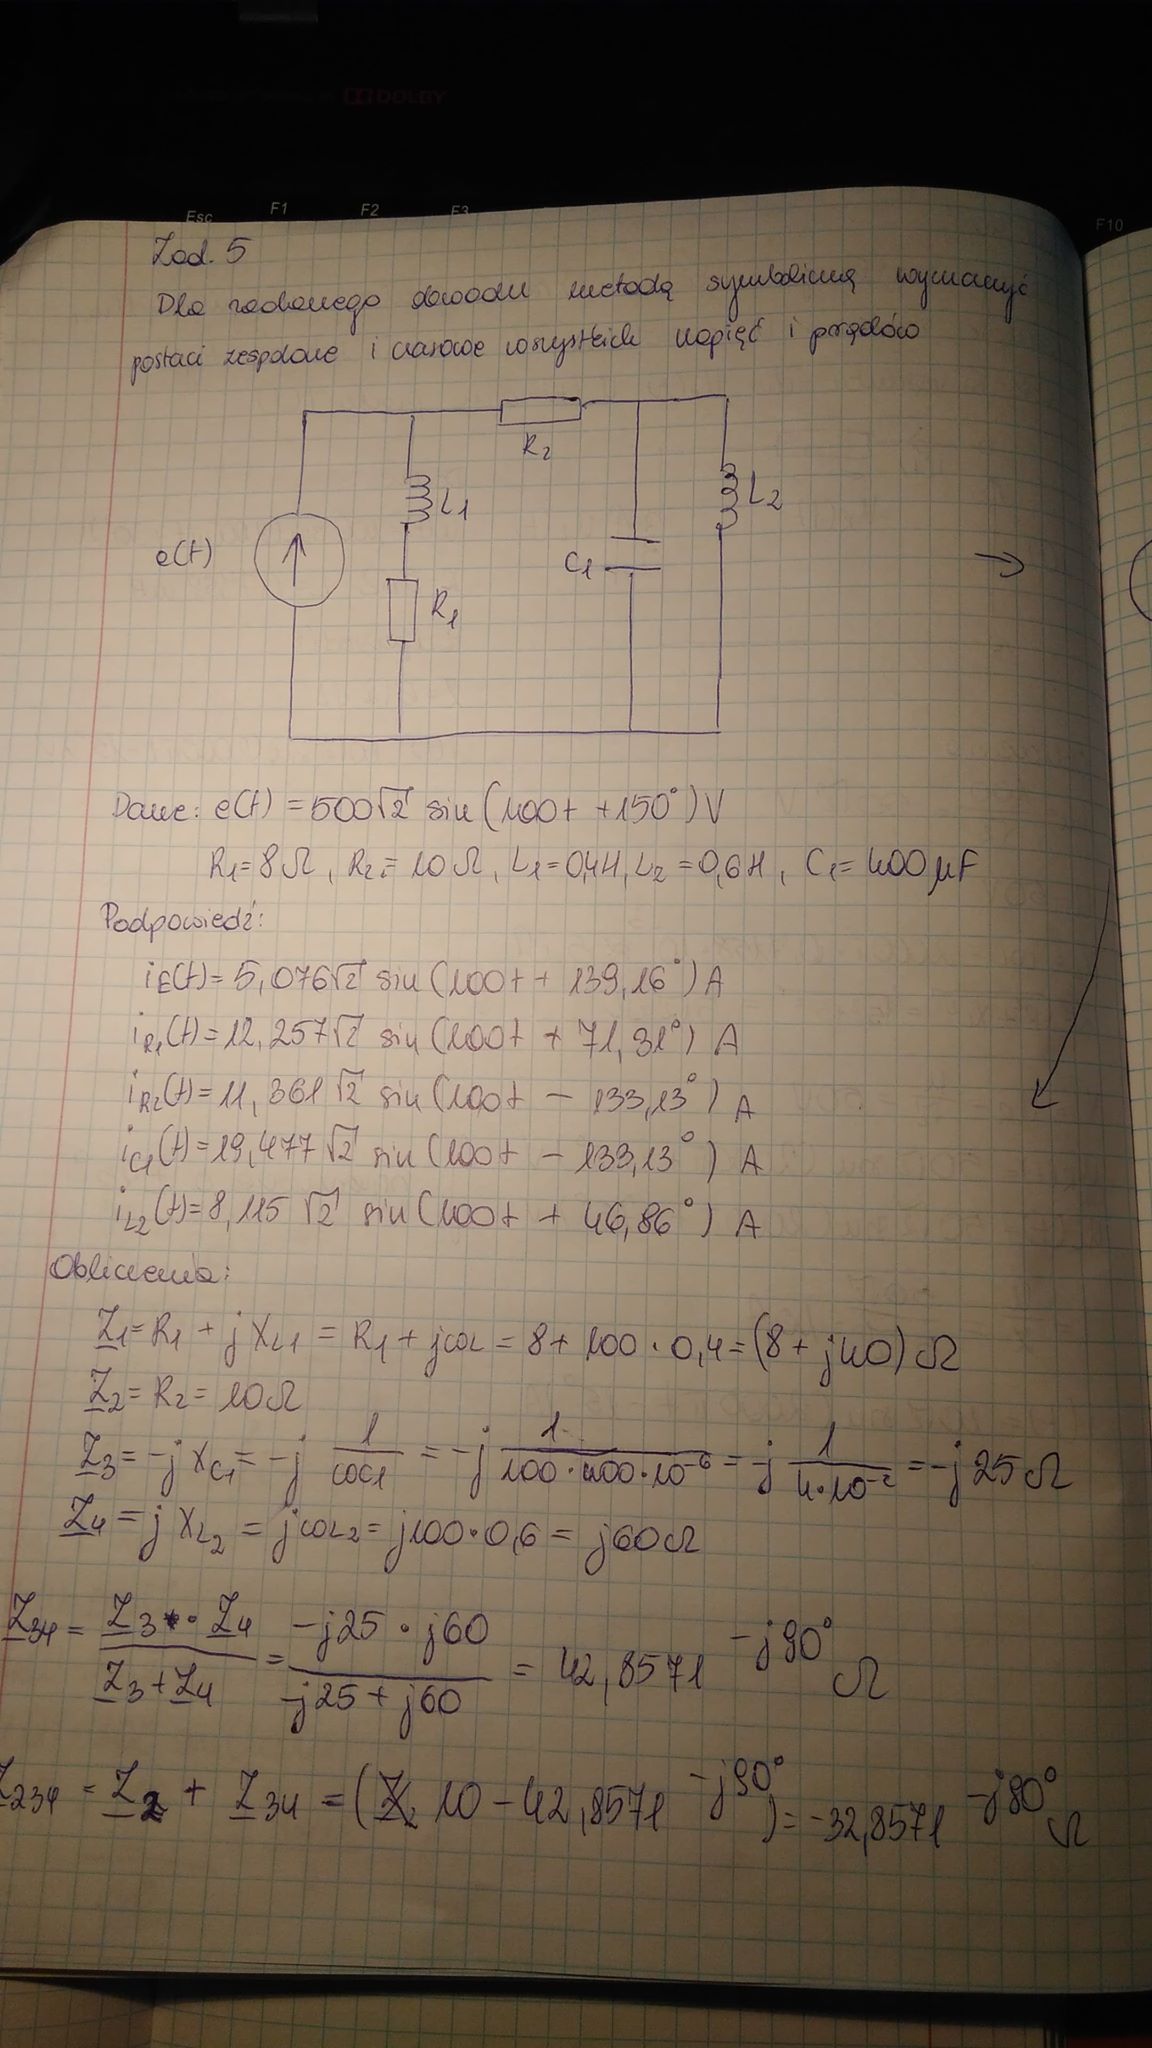 DOLBY
Esc F1 F2 F3 F10
Zad. 5
Dla zadanego obwodu metodą symboliczną wyznaczyć
postaci zespolone i czasowe wszystkich napięć i prądów
R2
L1
L2
e(t)
C1
R1
Dane: e(t) = 500√2 sin (100t + 150°) V
R1 = 8Ω, R2 = 10Ω, L1 = 0,4H, L2 = 0,6H, C1 = 400μF
Podpowiedź:
iE(t) = 5,076√2 sin (100t + 139,16°) A
iR1(t) = 12,257√2 sin (100t + 71,31°) A
iR2(t) = 11,361√2 sin (100t - 133,13°) A
iC1(t) = 19,477√2 sin (100t - 133,13°) A
iL2(t) = 8,115√2 sin (100t + 46,86°) A
Obliczenia:
Z1 = R1 + jXL1 = R1 + jωL = 8 + 100 · 0,4 = (8 + j40) Ω
Z2 = R2 = 10Ω
Z3 = -jXC1 = -j 1/ωC1 = -j 1/100·400·10^-6 = -j 1/4·10^-2 = -j25Ω
Z4 = jXL2 = jωL2 = j100·0,6 = j60Ω
Z34 = Z3 · Z4 / Z3 + Z4 = -j25 · j60 / -j25 + j60 = 42,8571 ^-j90° Ω
Z234 = Z2 + Z34 = (10 - 42,8571 ^-j90°) = -32,8571 ^-j90° Ω